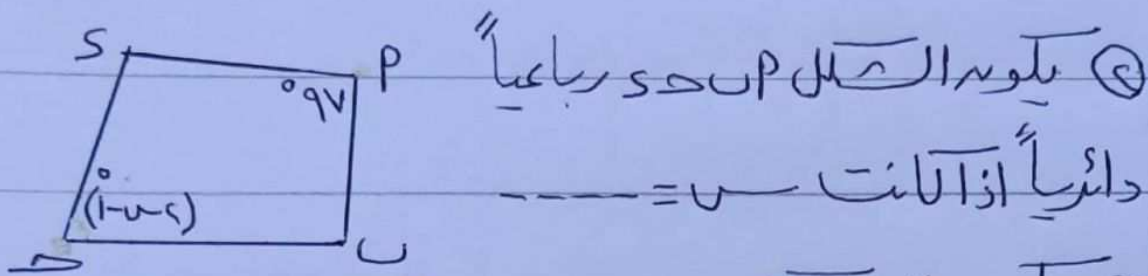 ② يكون الشكل P ب ح s رباعياً
دائرياً إذا كانت س = ----
s
P
٩٧°
(٢س-١)°
ح
ب